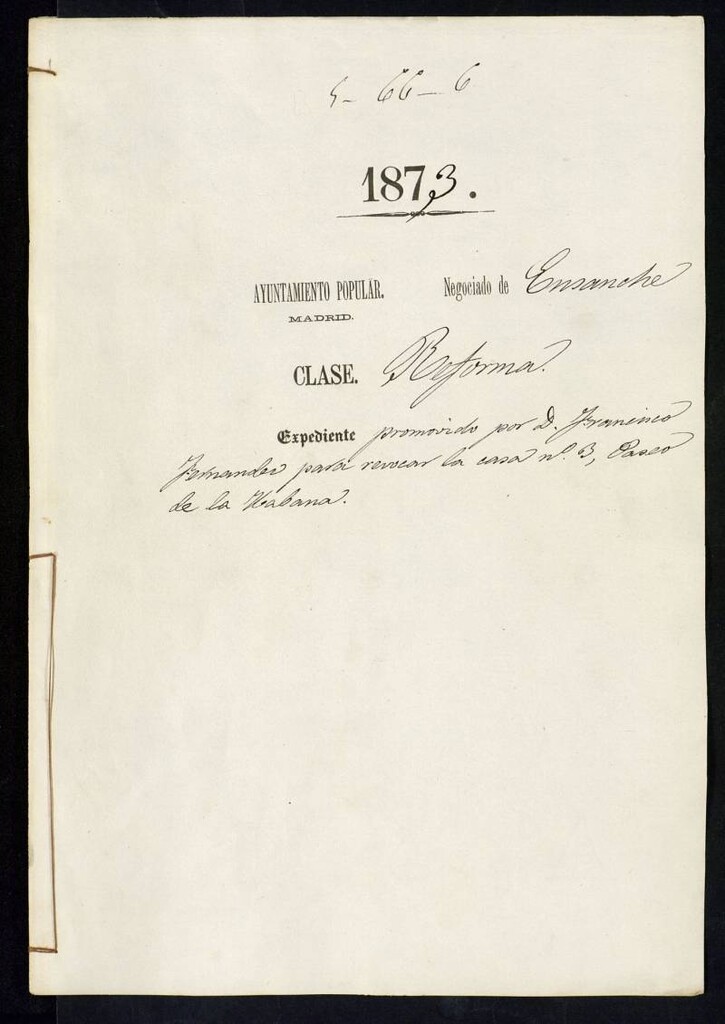 5-66-6
1873.
AYUNTAMIENTO POPULAR. Negociado de Ensanche
MADRID.
CLASE. Reforma.
Expediente promovido por D. Francisco
Fernandez para revocar la casa nº. 3, Paseo
de la Habana.